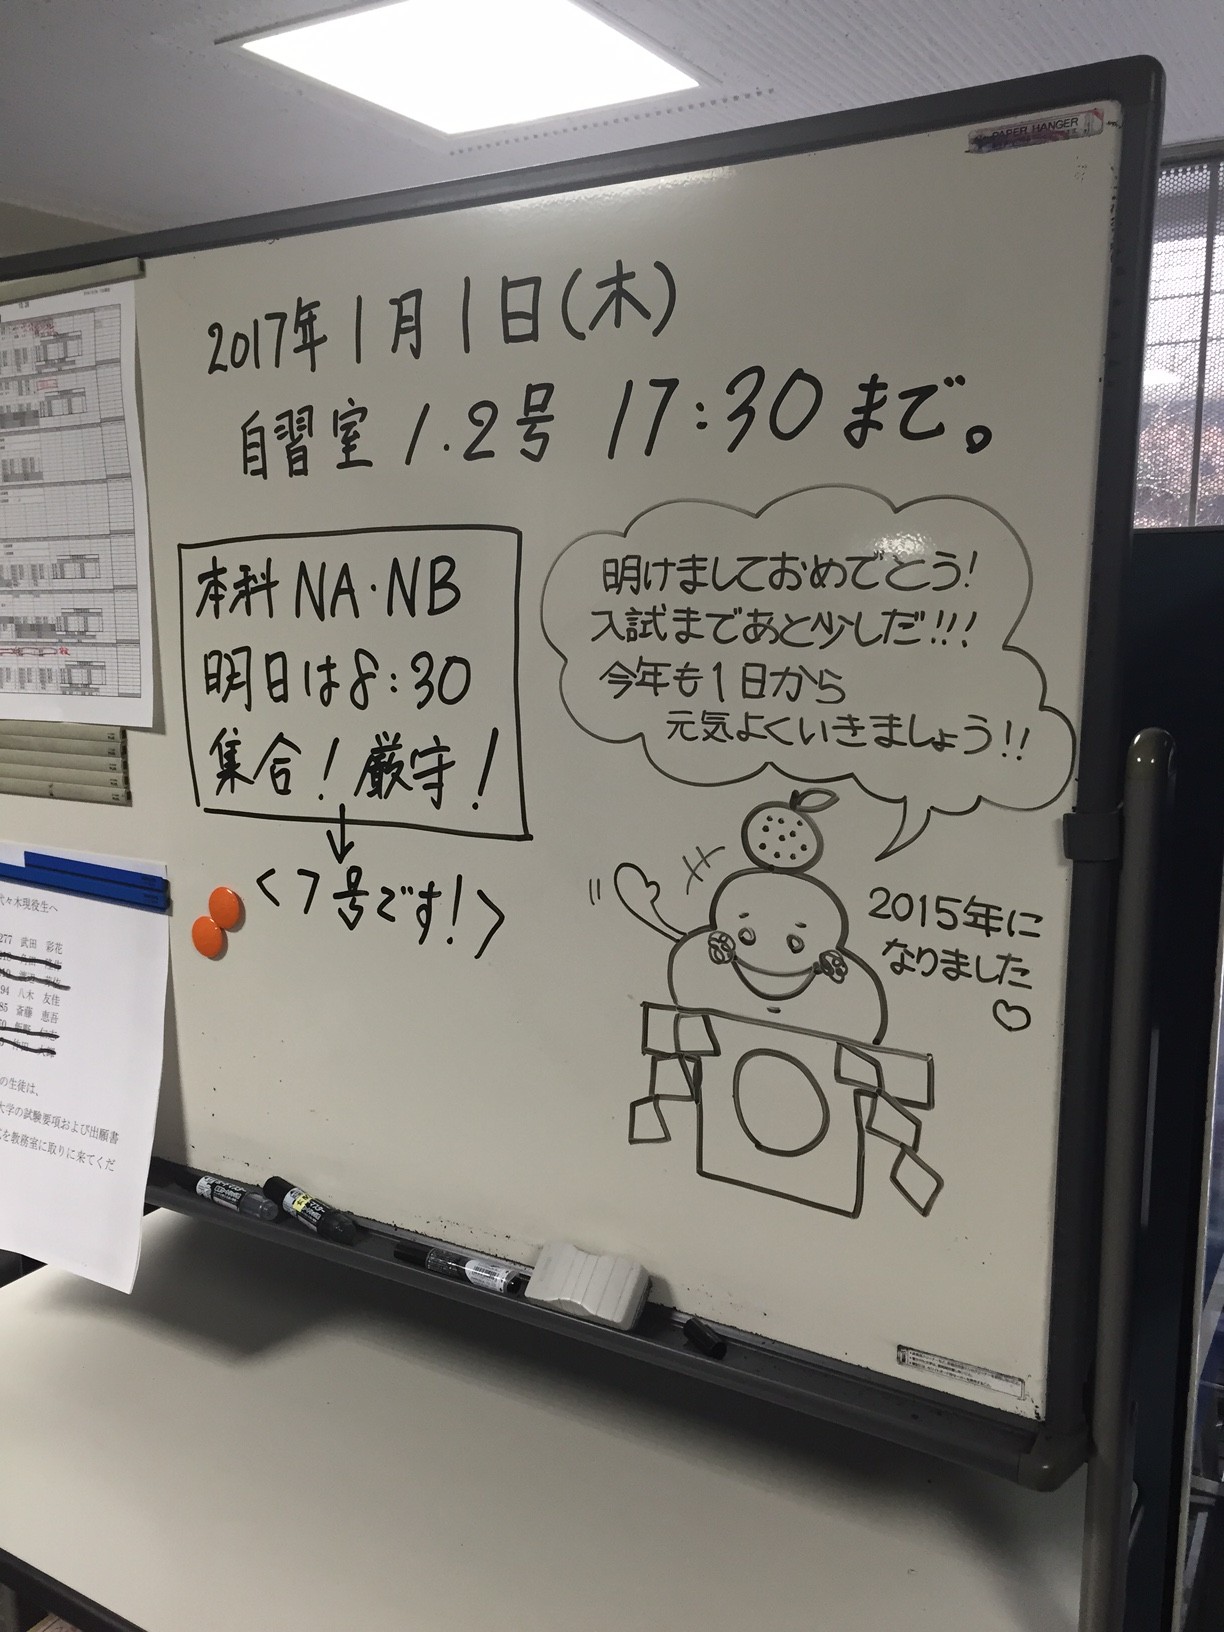 PAPER HANGER
2017年1月1日(木)
自習室 1.2号 17:30まで。
本科NA・NB
明日は8:30
集合!厳守!
↓
<7号です!>
明けましておめでとう!
入試まであと少しだ!!!
今年も1日から
元気よくいきましょう!!
2015年に
なりました
♡
代々木現役生へ
277 武田 彩花
94 八木 友佳
85 斎藤 恵吾
の生徒は、
大学の試験要項および出願書
を教務室に取りに来てくだ